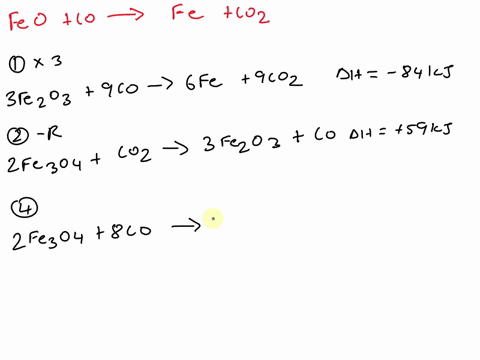 FeO + CO → Fe + CO2
① × 3
3Fe2O3 + 9CO → 6Fe + 9CO2 ΔH = -84kJ
② -R
2Fe3O4 + CO2 → 3Fe2O3 + CO ΔH = +59kJ
④
2Fe3O4 + 8CO →